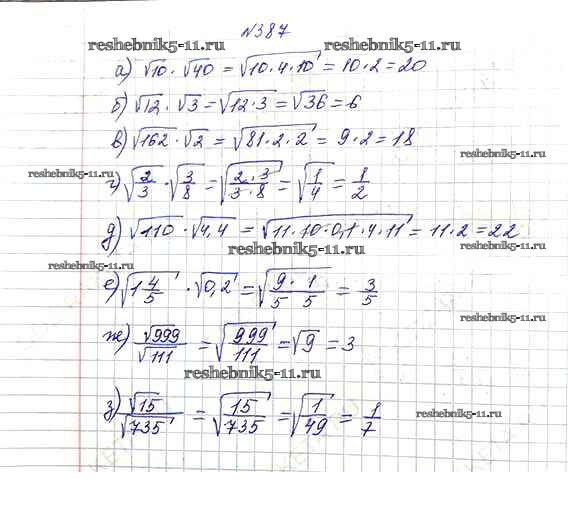 №387
reshebnik5-11.ru reshebnik5-11.ru
а) √10 · √40 = √(10·4·10) = 10·2=20
reshebnik5-11.ru
б) √12 · √3 = √(12·3) = √36 = 6
в) √162 · √2 = √(81·2·2) = 9·2=18
reshebnik5-11.ru
reshebnik5-11.ru
г) √(2/3) · √(3/8) = √((2·3)/(3·8)) = √(1/4) = 1/2
д) √110 · √4,4 = √(11·10·0,1·4·11) = 11·2=22
reshebnik5-11.ru
reshebnik5-11.ru
е) √(1 4/5) · √0,2 = √(9/5 · 1/5) = 3/5
reshebnik5-11.ru
ж) √999/√111 = √(999/111) = √9 = 3
reshebnik5-11.ru
з) √15/√735 = √(15/735) = √(1/49) = 1/7
reshebnik5-11.ru